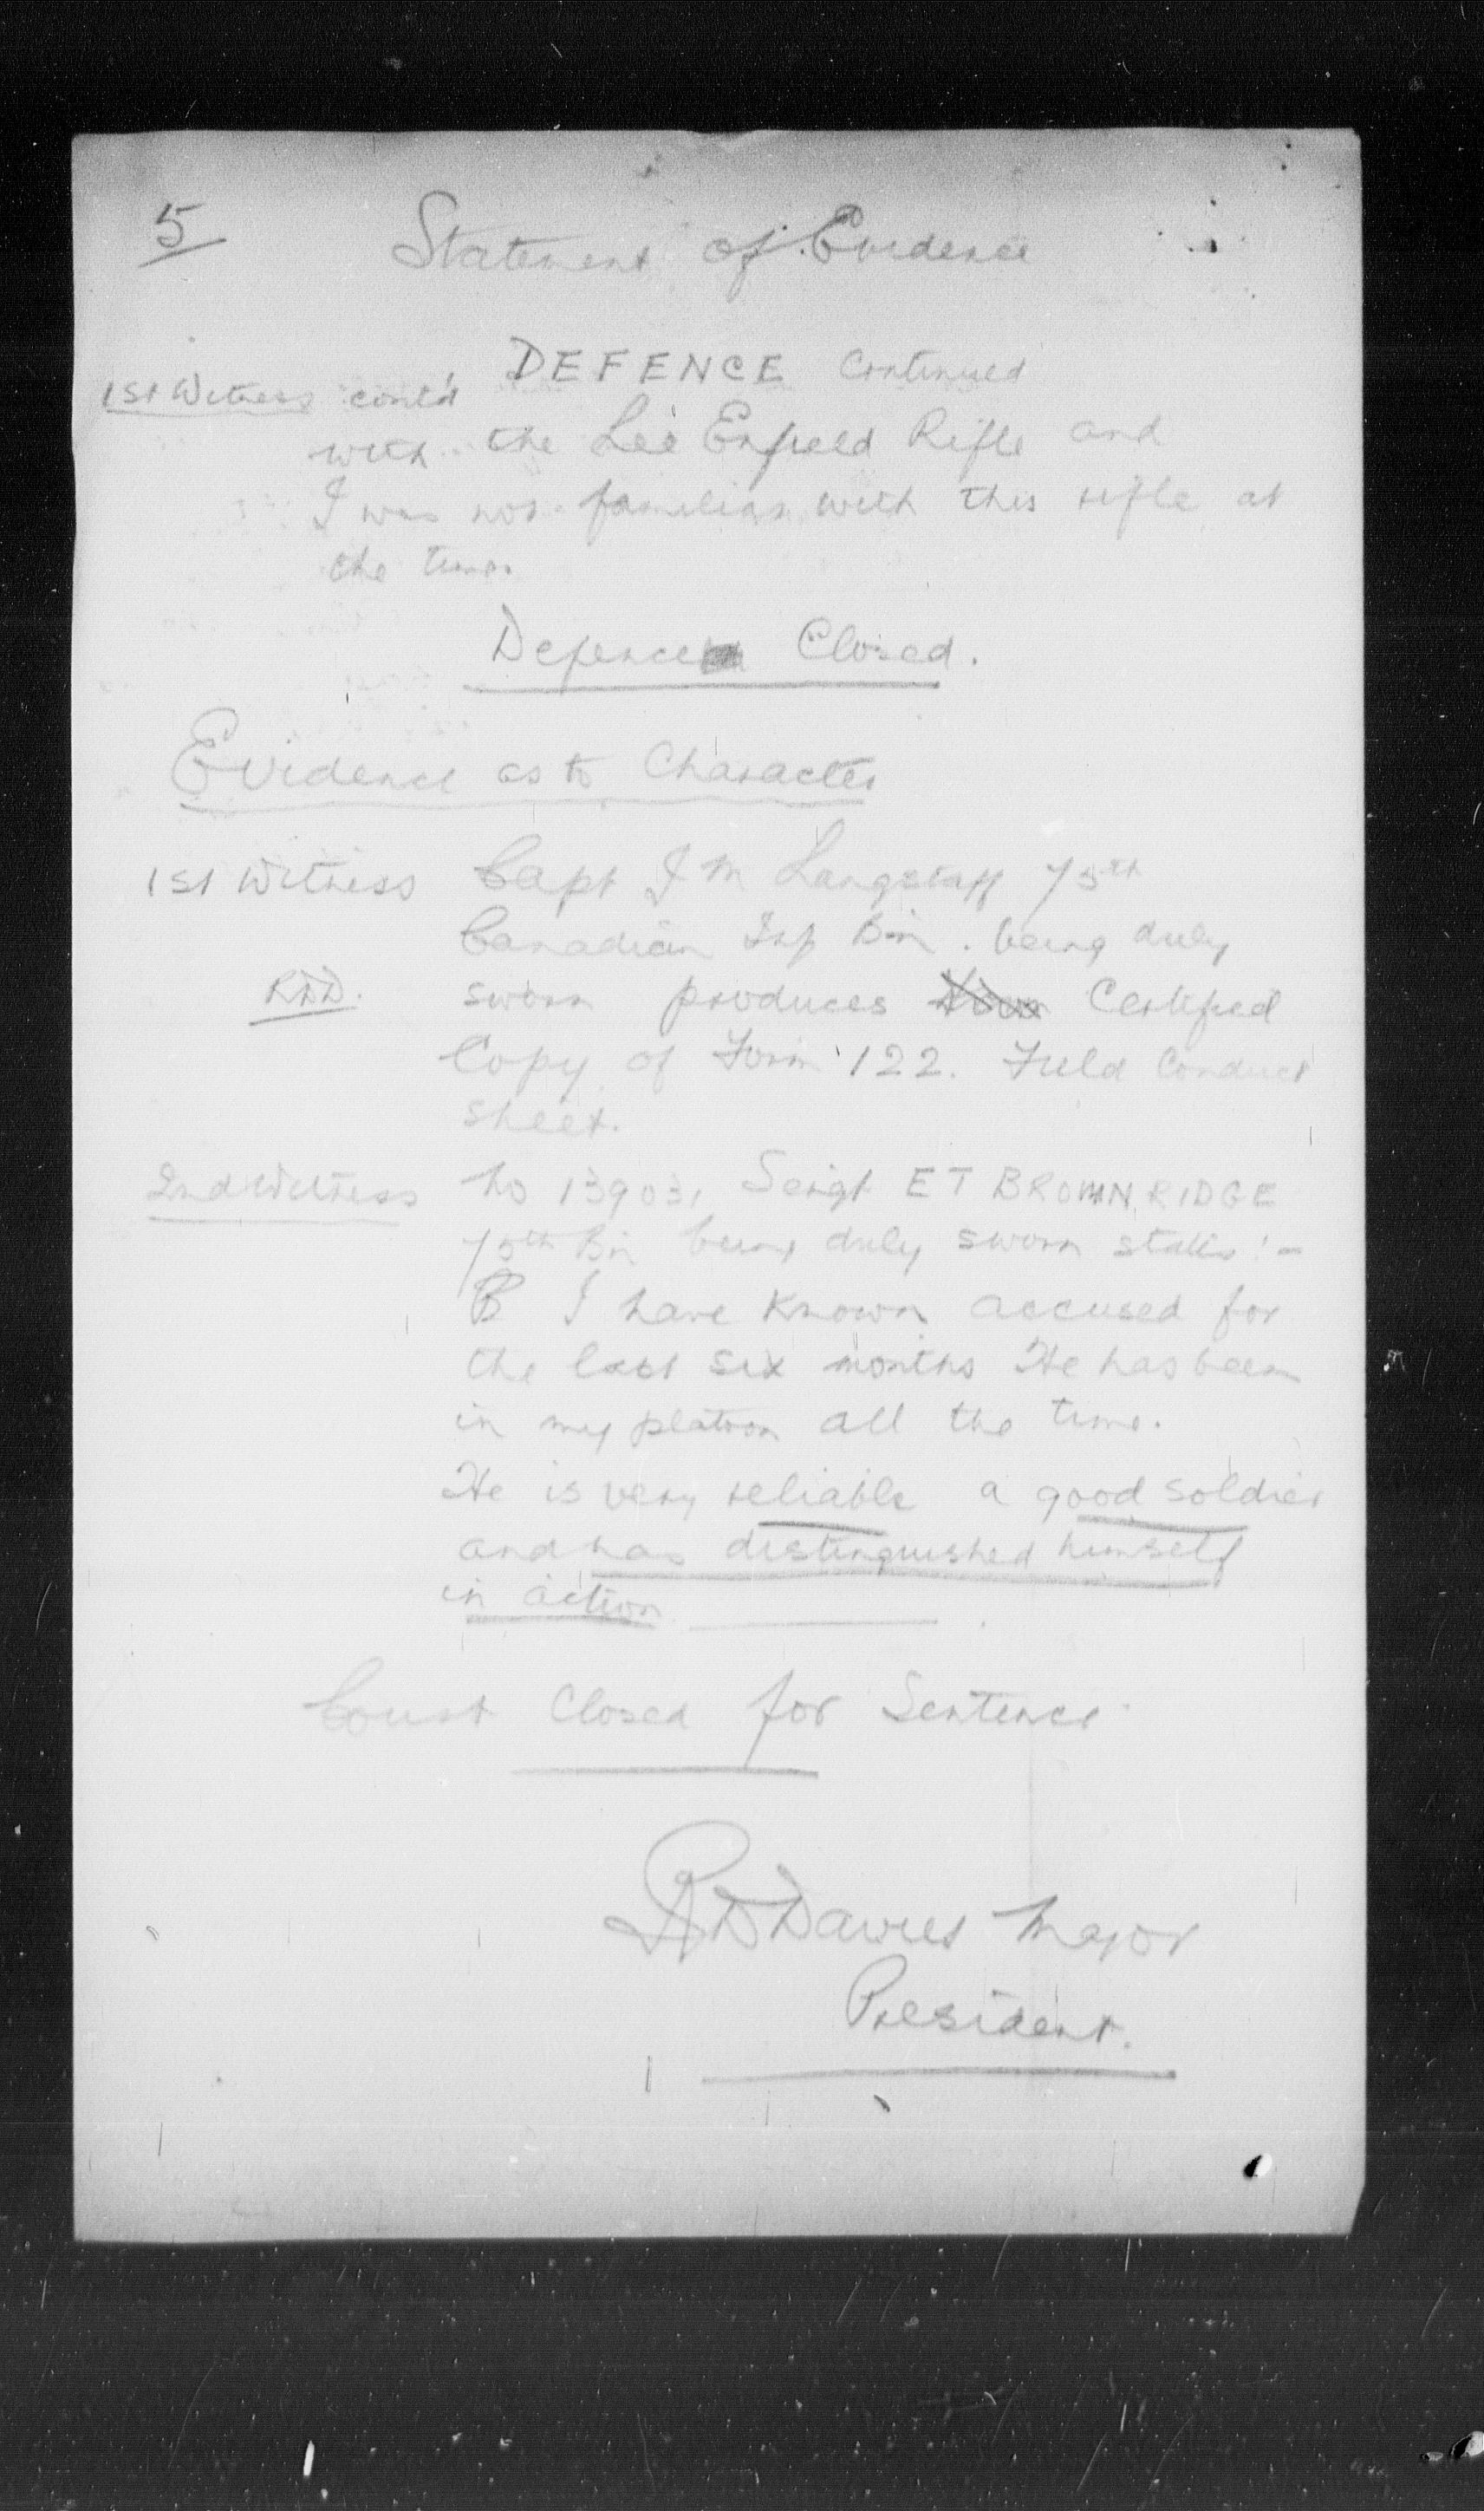 5
Statement of Evidence
DEFENCE Continued
1st Witness cont'd
with the Lee Enfield Rifle and
I was not familiar with this rifle at
the time.
Defence Closed.
Evidence as to Character
1st Witness Capt J M Langstaff 75th
Canadian Inf Bn. being duly
RDD. sworn produces Certified
Copy of Form 122. Field Conduct
Sheet.
2nd Witness No 139031 Sergt E T BROWNRIDGE
75th Bn being duly sworn states :-
I have known accused for
the last six months He has been
in my platoon all the time.
He is very reliable a good soldier
and has distinguished himself
in action
Court Closed for Sentence
R D Davies Major
President.